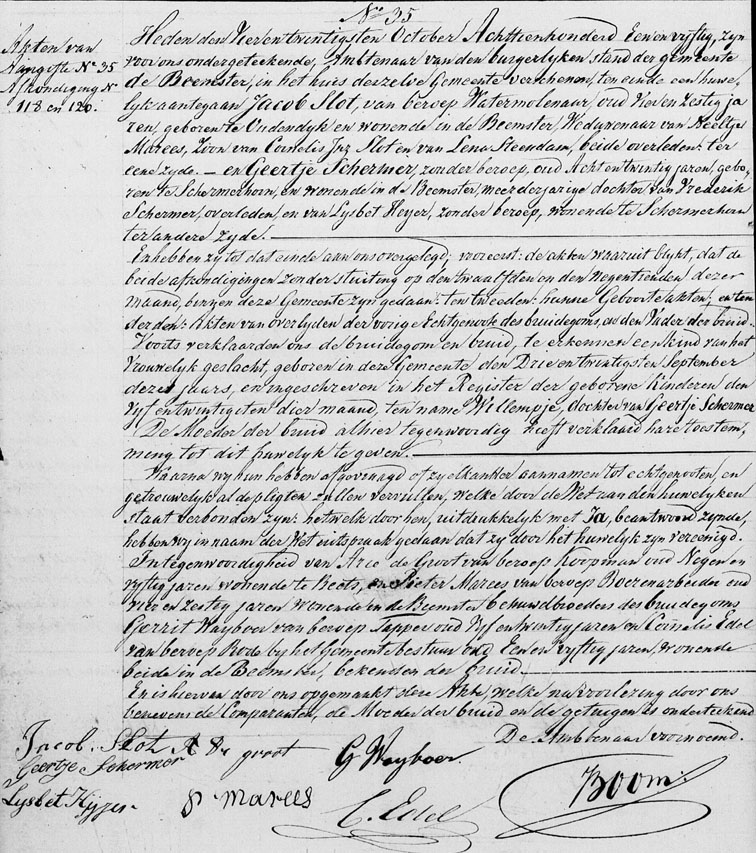 No 35
Akten van
Aangifte No 35
Afkondiging No
118 en 120.
Heden den Vierentwintigsten October Achttienhonderd Een en vyftig, zyn
voor ons ondergeteekende, Ambtenaar van den burgerlyken stand der gemeente
de Beemster, in het huis derzelve Gemeente verschenen, ten einde een huwe-
lyk aantegaan Jacob Slot, van beroep Watermolenaar, oud Vier en Zestig ja
ren, geboren te Oudendyk en wonende in de Beemster, Weduwenaar van Neeltje
Marees, Zoon van Cornelis Jnz Slot en van Lena Keesdam, beide overleden ter
eene zyde. — en Geertje Schermer, zonder beroep, oud Acht en twintig jaren, gebo-
ren te Schermerhorn, en wonende in de Beemster, meerderjarige dochter van Frederik
Schermer, overleden, en van Lysbet Heyer, zonder beroep, wonende te Schermerhorn
ter andere zyde.
En hebben zy tot dat einde aan ons overgelegd; vooreerst: de akten waaruit blykt, dat de
beide afkondigingen zonder stuiting op den twaalfden en den Negentienden dezer
maand, binnen deze Gemeente zyn gedaan: ten tweeden: hunne Geboorte akten; en ten
derden: Akten van overlyden der vorige Echtgenoote des bruidegoms, en den Vader der bruid.
Voorts verklaarden ons de bruidegom en bruid, te erkennen een kind van het
Vrouwelyk geslacht, geboren in deze Gemeente den Drie en twintigsten September
dezes jaars, en ingeschreven in het Register der geborene Kinderen den
vyf entwintigsten dier maand, ten name Willempje, dochter van Geertje Schermer
De Moeder der bruid alhier tegenwoordig heeft verklaard hare toestem-
ming tot dit huwelyk te geven.
Waarna wy hun hebben afgevraagd of zy elkander aannamen tot echtgenooten, en
getrouwelyk al de pligten zullen vervullen, welke door de Wet aan den huwelyken
staat verbonden zyn: hetwelk door hen, uitdrukkelyk met Ja, beantwoord zynde,
hebben wy in naam der Wet uitspraak gedaan dat zy door het huwelyk zyn vereenigd.
In tegenwoordigheid van Arie de Groot van beroep Koopman oud Negen en
vyftig jaren wonende te Beets, en Pieter Marees van beroep Boerenarbeider oud
vier en zestig jaren wonende in de Beemster behuwdbroeders des bruidegoms
Gerrit Wayboer van beroep Tapper oud Vyf entwintig jaren en Cornelis Edel
van beroep Bode by het Gemeente bestuur oud Een en vyftig jaren, wonende
beide in de Beemster, bekenden der bruid.
En is hiervan door ons opgemaakt deze Akte, welke na voorlezing door ons
benevens de Comparanten, de Moeder der bruid en de getuigen is onderteekend
De Ambtenaar voornoemd.
Jacob. Slot A de groot G Wayboer.
Geertje Schermer
Lysbet P Marees C. Edel Boom